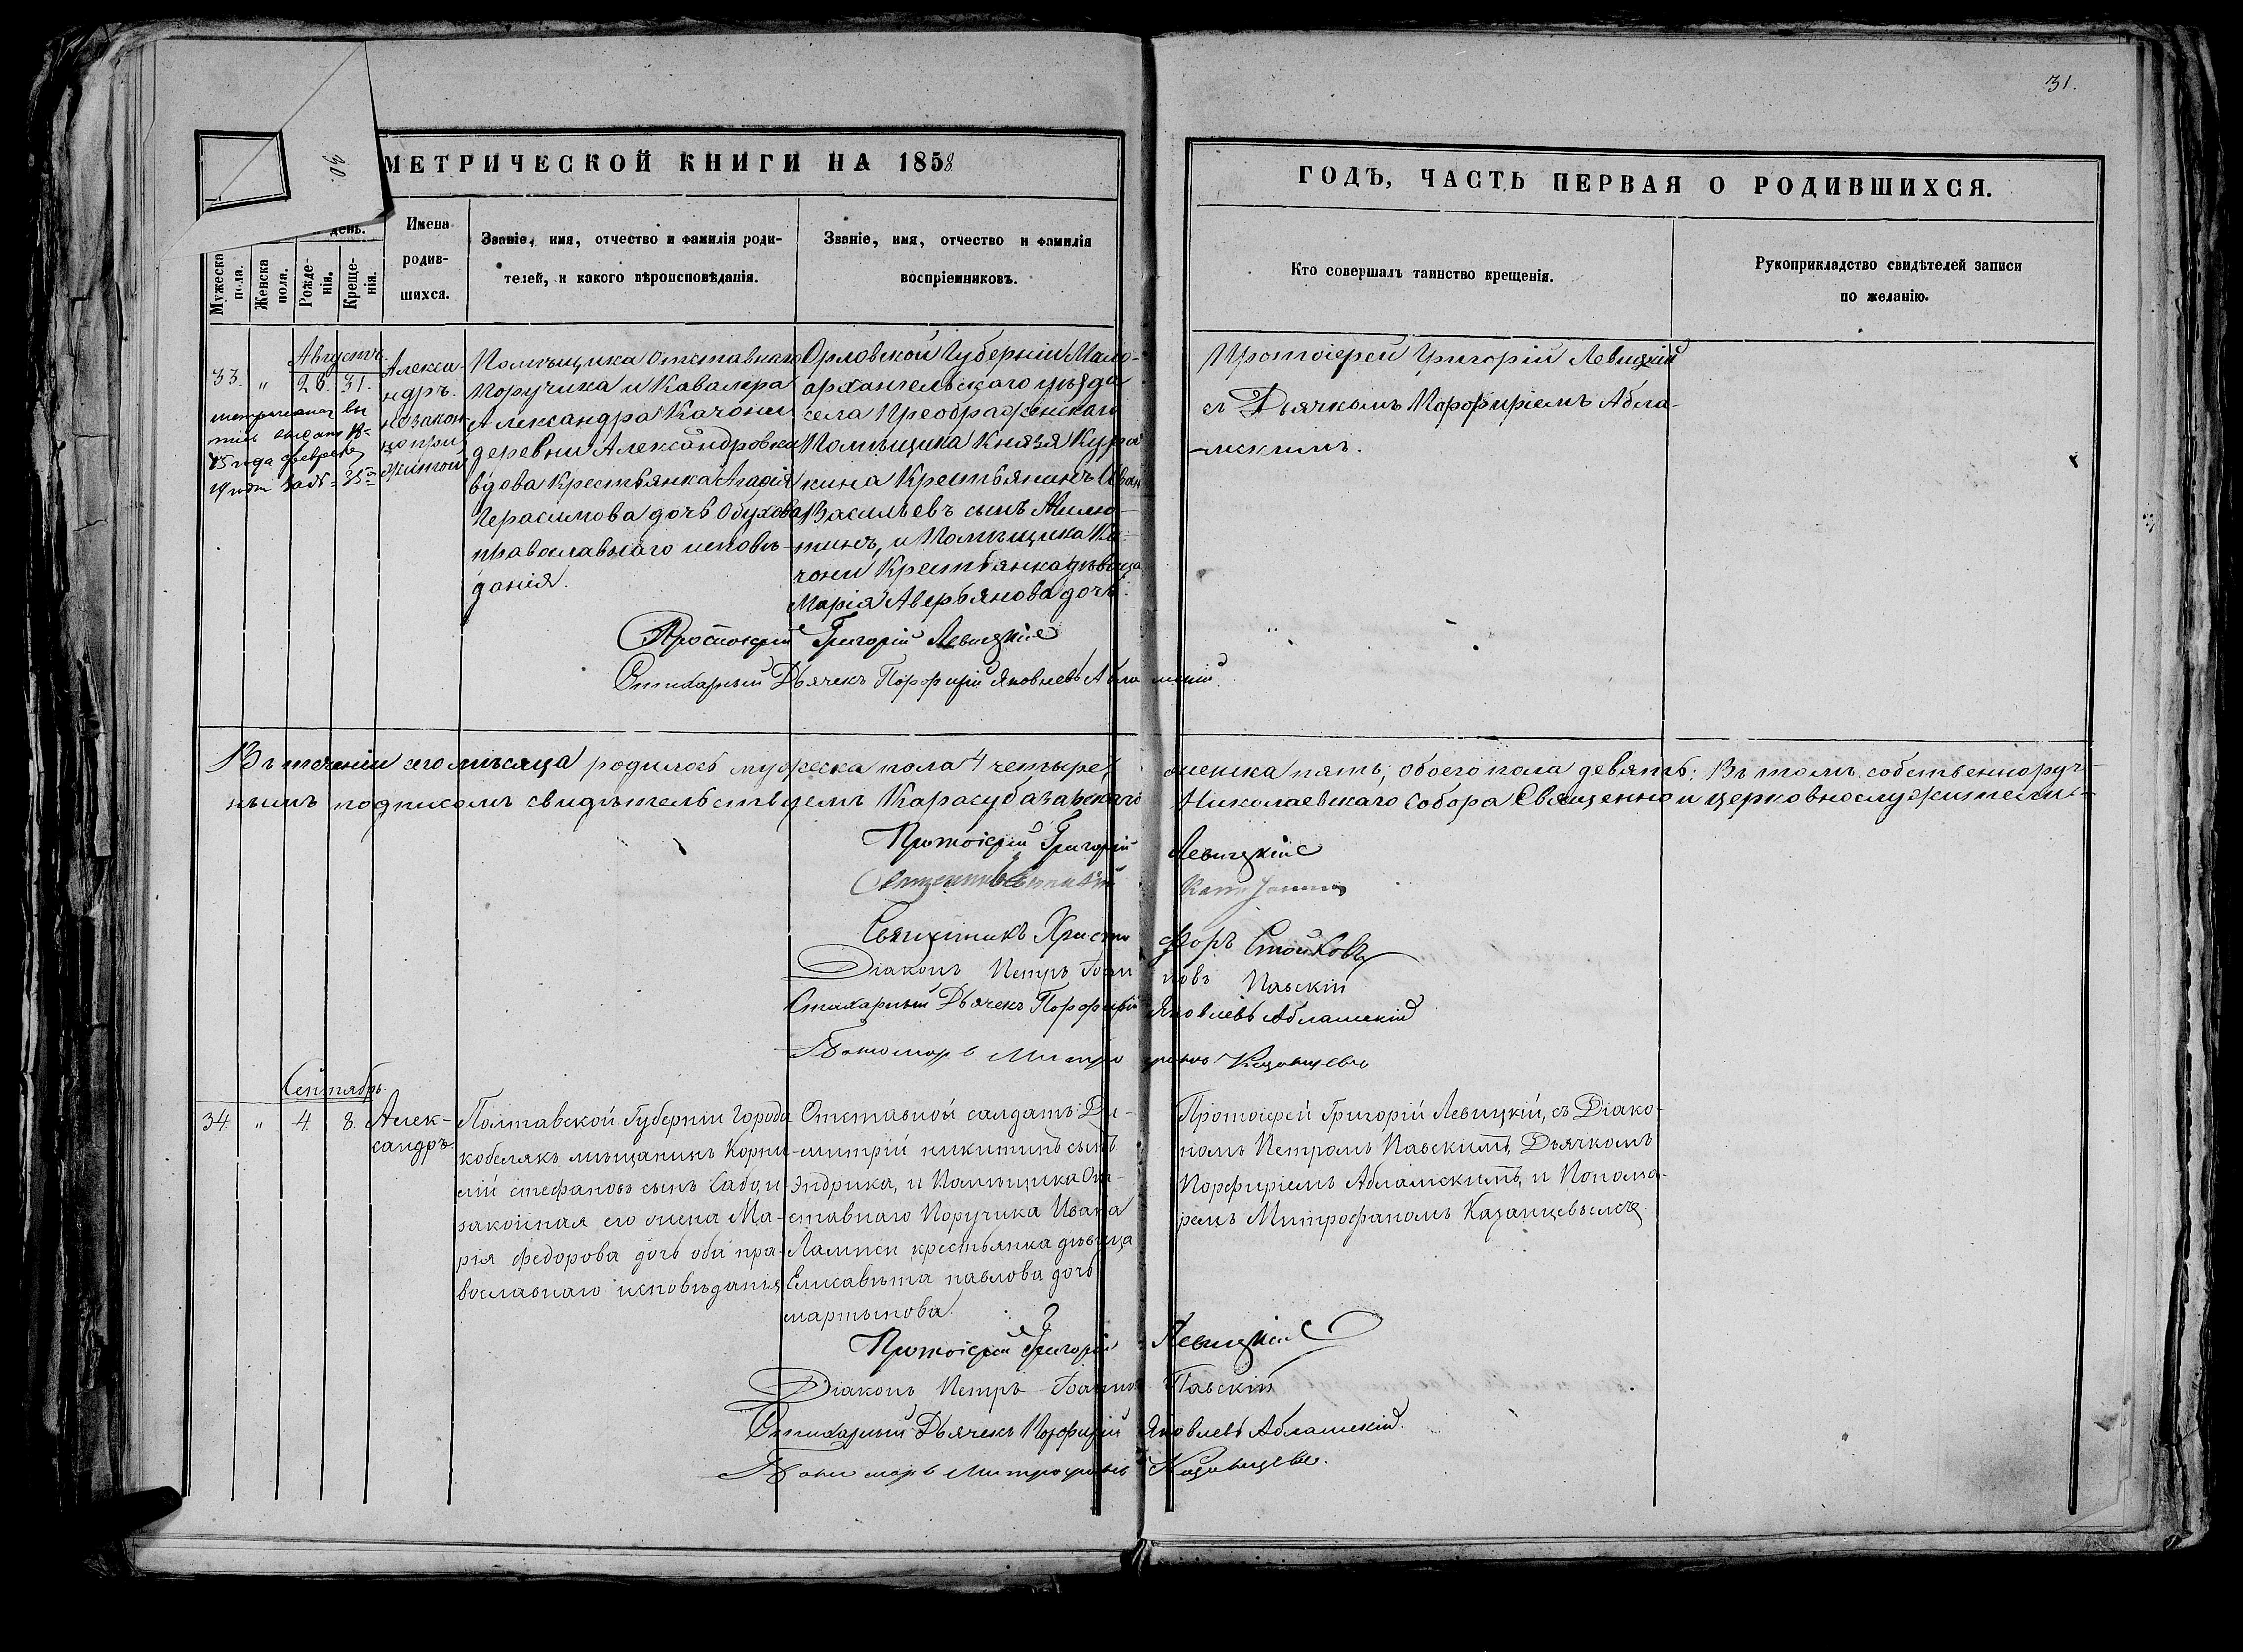 31.
30.
МЕТРИЧЕСКОЙ КНИГИ НА 1858
ГОДЪ, ЧАСТЬ ПЕРВАЯ О РОДИВШИХСЯ.
Мужеска пола.
Женска пола.
день.
Рожде-
нія.
Креще-
нія.
Имена
родив-
шихся.
Званіе, имя, отчество и фамилія роди-
телей, и какого вѣроисповѣданія.
Званіе, имя, отчество и фамилія
воспріемниковъ.
Кто совершалъ таинство крещенія.
Рукоприкладство свидѣтелей записи
по желанію.
Августъ
33. " 26. 31.
Алекса
ндръ.
незакон
но при
житой
Помѣщика Отставнаго
Поручика и Кавалера
Александра Качони
деревни Александровки
вдова Крестьянка Агафія
Герасимова дочь Обухова
православнаго исповѣ-
данія.
Орловской Губерніи Мало-
архангельскаго уѣзда
села Преображенскаго
Помѣщика Князя Кура
кина Крестьянинъ Иван
Васильевъ сынъ Милю-
тинъ, и Помѣщика Ка-
чони Крестьянка дѣвица
Марія Аверьянова дочь.
Протоіерей Григорій Левицкій
съ Дьячкомъ Порфиріемъ Абла-
-мскимъ.
Протоіерей Григорій Левицкій
Стихарный Дьячекъ Порфирій Яковлевъ Абламскій.
Въ теченіи сего мѣсяца родилось мужеска пола 4 четыре, женска пять; обоего пола девять: Въ томъ собственноруч-
нымъ подписомъ свидѣтельствуемъ Карасубазарскаго Николаевскаго Собора Священно и церковнослужители:
Протоіерей Григорій Левицкій
Священникъ
Священникъ Христофоръ Стойковъ
Діаконъ Петръ Іоанновъ Павскій
Стихарный Дьячекъ Порфирій Яковлевъ Абламскій
Пономарь Митрофанъ Казанцевъ
Сентябрь.
34. " 4. 8.
Алек-
сандръ.
Полтавской Губерніи Города
кобелякъ мѣщанинъ Корни-
лій стефановъ сынъ Сабо, и
законная его жена Ма-
рія федорова дочь оба пра-
вославнаго исповѣданія
Отставной салдатъ Ди-
митрій никитинъ сынъ
Эндрика, и Помѣщика От-
ставнаго Поручика Ивана
Лампси крестьянка дѣвица
Елисавѣта павлова дочь
мартынова.
Протоіерей Григорій Левицкій, съ Діако-
номъ Петромъ Павскимъ, Дьячкомъ
Порфиріемъ Абламскимъ, и Понома-
ремъ Митрофаномъ Казанцевымъ.
Протоіерей Григорій Левицкій
Діаконъ Петръ Іоанновъ Павскій
Стихарный Дьячекъ Порфирій Яковлевъ Абламскій.
Пономарь Митрофанъ Казанцевъ.